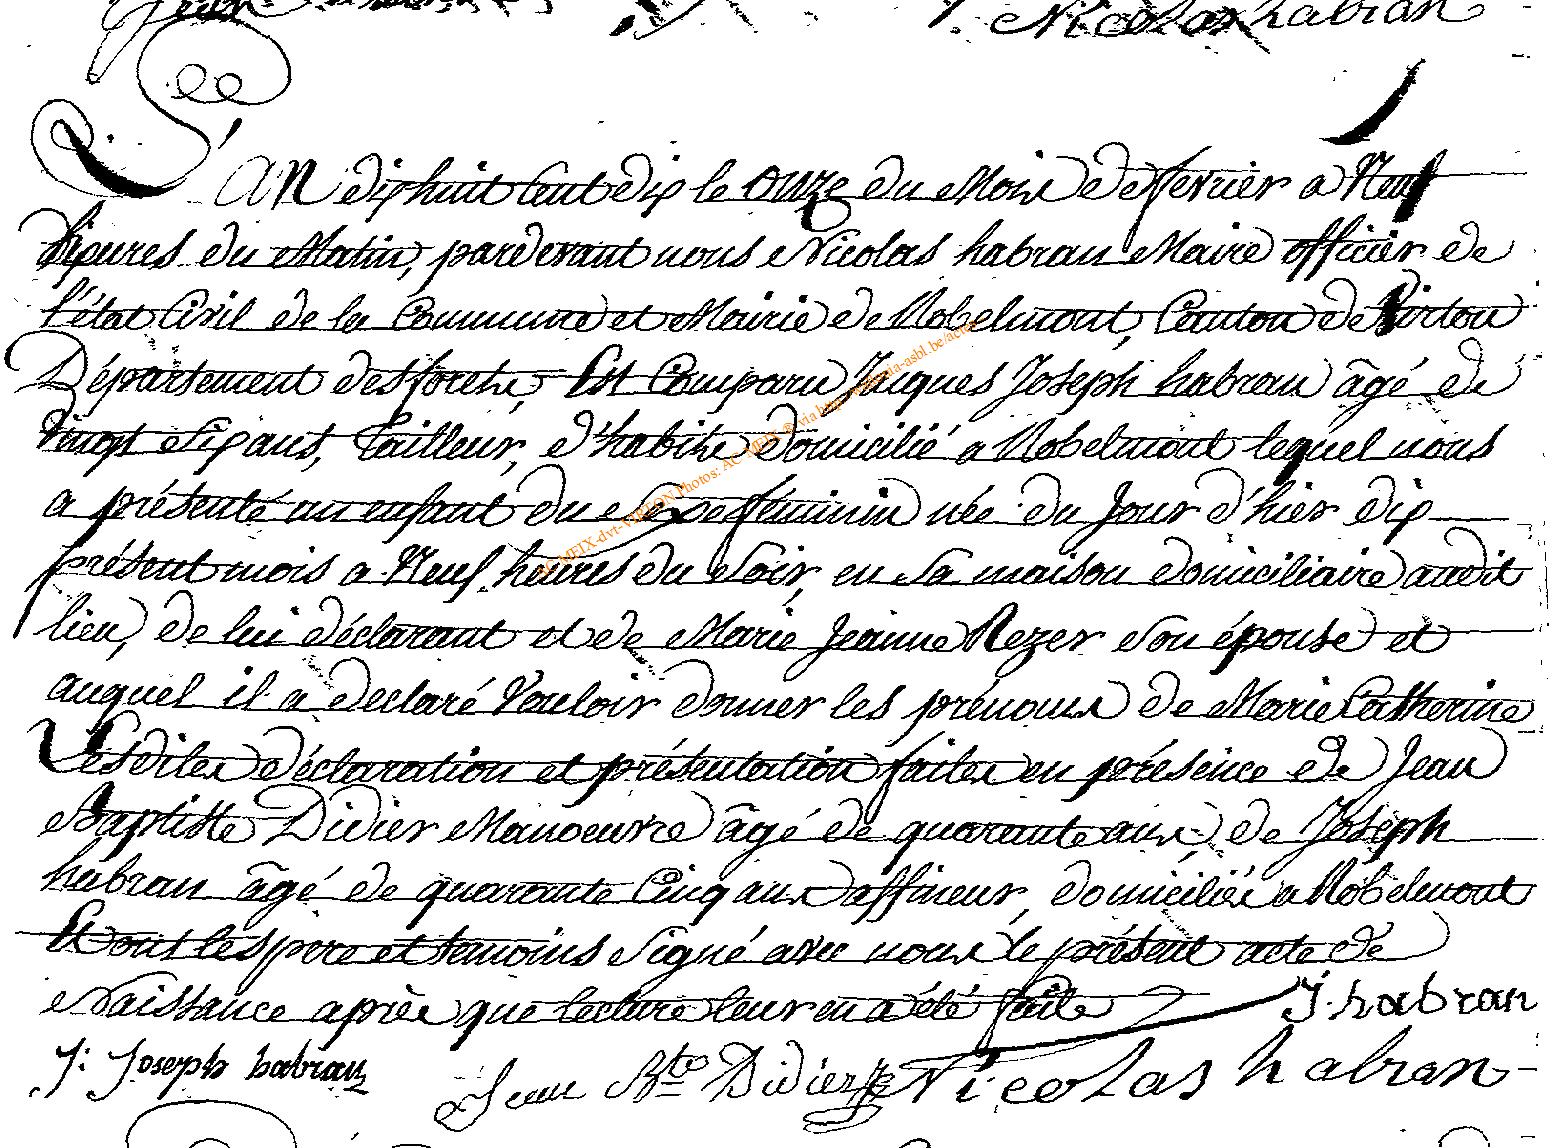 Nicolas habran
L'an dixhuit Cent dix le Onze du Mois de fevrier a Neuf
heures du Matin, pardevant nous Nicolas habran Maire officier de
l'état Civil de la Commune et Mairie de Robelmont, Canton de Virton
Département des forets, Est Comparu Jacques Joseph habran âgé de
vingt Six ans, Tailleur, d'habits domicilié a Robelmont lequel nous
a présenté un enfant du Sexe féminin née du Jour d'hier dix
présent mois a Neuf heures du Soir, en Sa maison domiciliaire audit
lieu, de lui déclarant et de Marie Jeanne Rezer Son épouse et
auquel il a declaré Vouloir donner les prénoms de Marie Catherine
Lesdites déclaration et présentation faites en présence de Jean
Baptiste Didier Manoeuvre âgé de quarante ans, de Joseph
habran âgé de quarante Cinq ans affineur, domiciliés a Robelmont
Et ont les pere et temoins Signé avec nous le présent acte de
Naissance après que lecture leur en a été faite J. habran
J: Joseph habran Jean Bte Didier Nicolas habran
AC-MEIX-dvt-VIRTON Photos: AC-MEIX © via